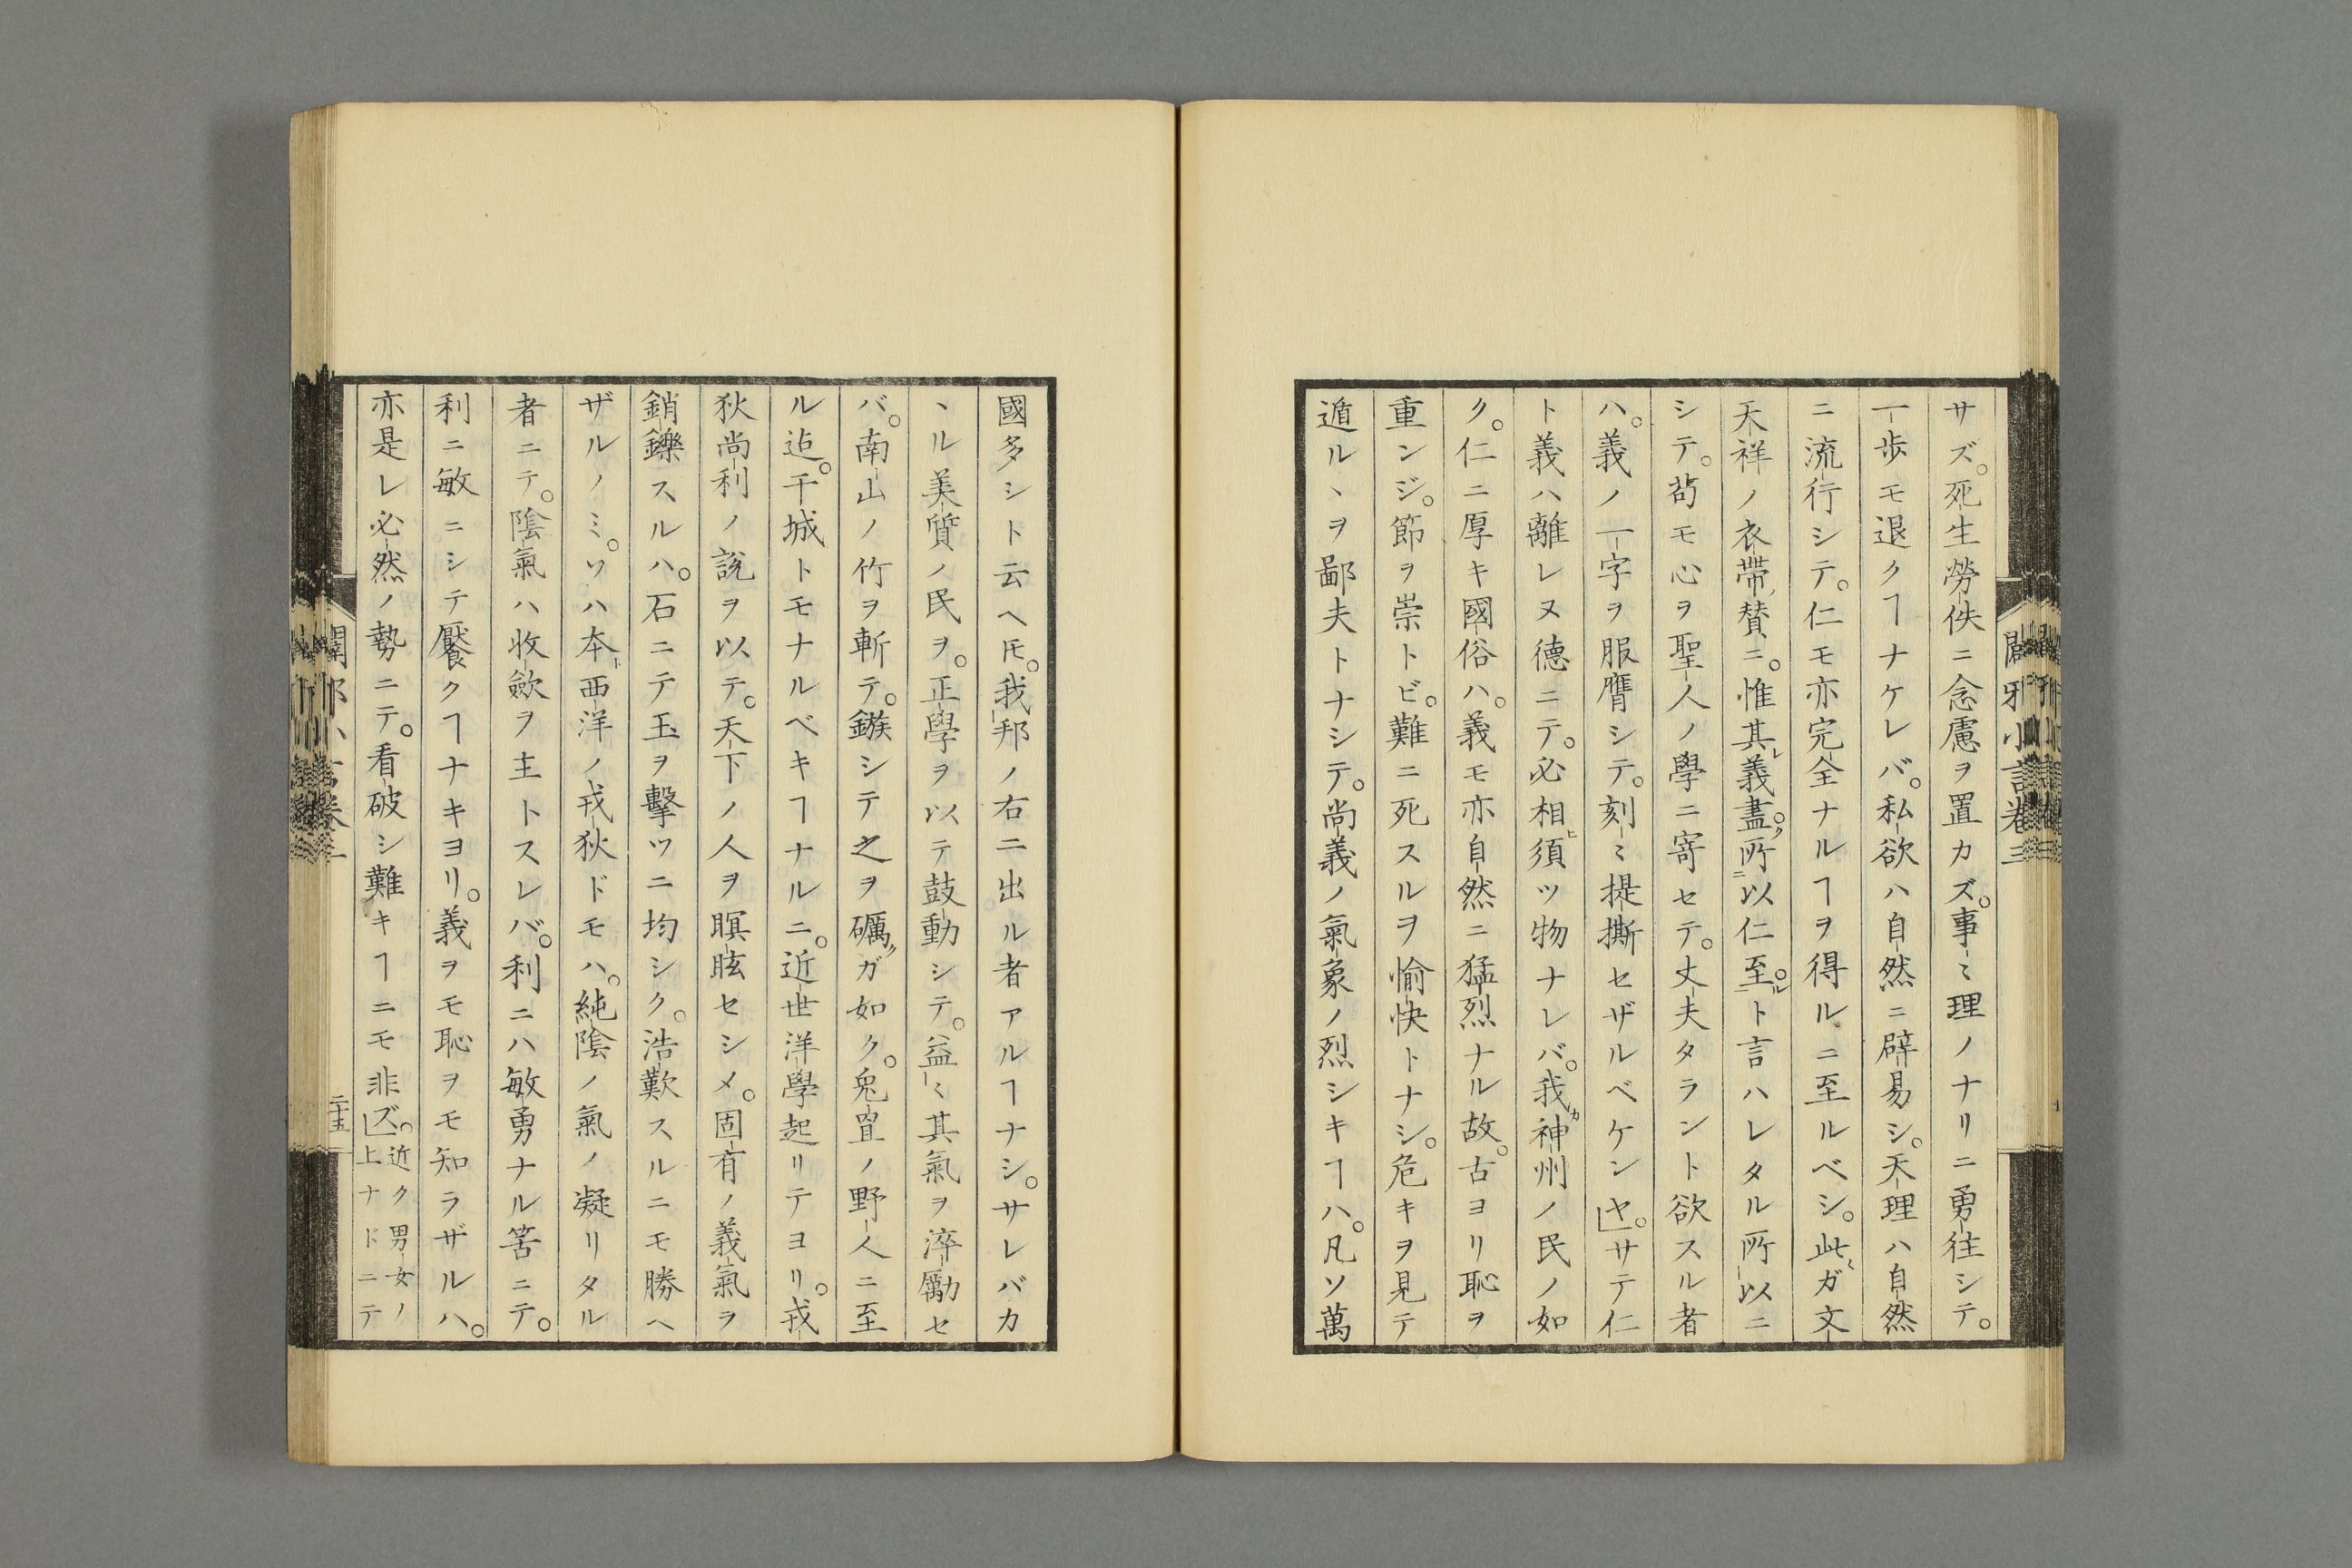 サズ。死生勞佚ニ念慮ヲ置カズ。事〻理ノナリニ勇往シテ。
一歩モ退クヿナケレバ。私欲ハ自然ニ辟易シ。天理ハ自然
ニ流行シテ。仁モ亦完全ナルヿヲ得ルニ至ルベシ。此ガ文
天祥ノ衣帶ノ賛ニ。惟其レ義盡ク。所以ニ仁至ル。ト言ハレタル所以ニ
シテ。苟モ心ヲ聖人ノ學ニ寄セテ。丈夫タラント欲スル者
ハ。義ノ一字ヲ服膺シテ。刻〻提撕セザルベケンヤ。」サテ仁
ト義ハ離レヌ德ニテ。必相ヒ須ツ物ナレバ。我カ神州ノ民ノ如
ク。仁ニ厚キ國俗ハ。義モ亦自然ニ猛烈ナル故。古ヨリ恥ヲ
重ンジ。節ヲ崇トビ。難ニ死スルヲ愉快トナシ。危キヲ見テ
遁ルヽヲ鄙夫トナシテ。尚義ノ氣象ノ烈シキヿハ。凡ソ萬
闢邪小言卷三
國多シト云ヘ𪜈。我邦ノ右ニ出ル者アルヿナシ。サレバカ
ヽル美質ノ民ヲ。正學ヲ以テ鼓動シテ。益〻其氣ヲ淬勵セ
バ。南山ノ竹ヲ斬テ。鏃シテ之ヲ礪グガ如ク。兔罝ノ野人ニ至
ル迠。干城トモナルベキヿナルニ。近世洋學起リテヨリ。戎
狄尚利ノ説ヲ以テ。天下ノ人ヲ瞑眩セシメ。固有ノ義氣ヲ
銷鑠スルハ。石ニテ玉ヲ擊ツニ均シク。浩歎スルニモ勝ヘ
ザルノミ。ソハ本ト西洋ノ戎狄ドモハ。純陰ノ氣ノ凝リタル
者ニテ。陰氣ハ收斂ヲ主トスレバ。利ニハ敏勇ナル筈ニテ。
利ニ敏ニシテ饜クヿナキヨリ。義ヲモ恥ヲモ知ラザルハ。
亦是レ必然ノ勢ニテ。看破シ難キヿニモ非ズ。」近ク男女ノ
上ナドニテ
二十五